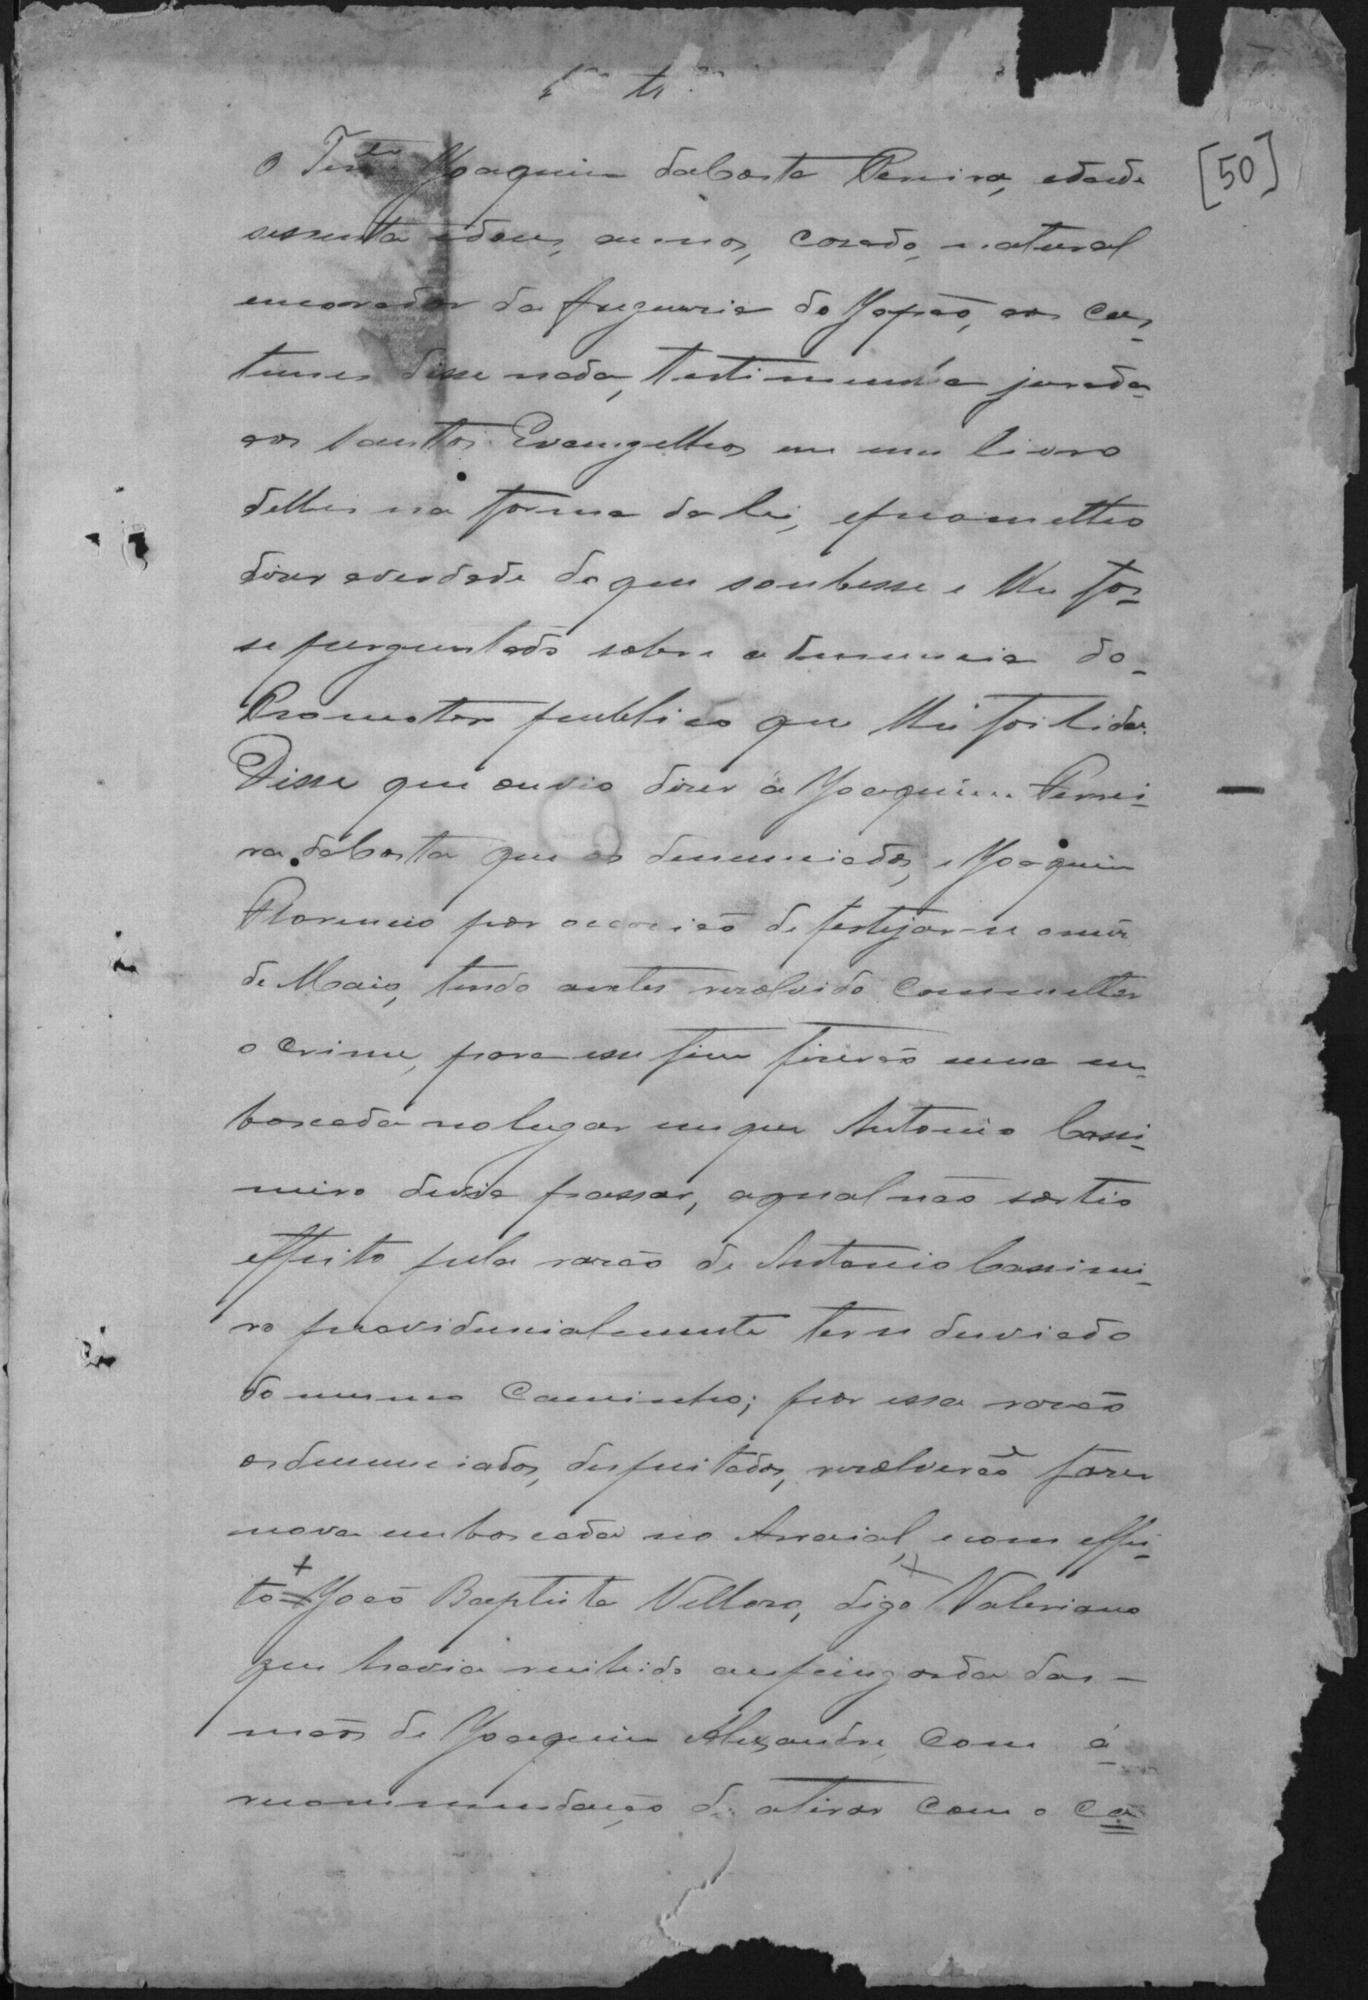 1ª tª
[50]
O Tene Joaquim daCosta Pereira, edade
sessenta edous, annos, casado, natural
emorador da freguesia do Japão, aos cos-
tumes disse nada, testimunha jurada
aos Santos Evangelhos em um livro
delles na forma da lei, eprometteo
diser averdade do que soubesse e lhe fos-
se perguntado sobre a denuncia do
Promotor publico que lhe foi lida.
Disse que ouvio diser a Joaquim Ferrei-
ra daCosta que os denunciados, e Joaquim
Florencio por occasião de festejar-se o mez
de Maio, tendo antes resolvido commetter
o crime, para esse fim fiserão uma em-
boscada nolugar emque Antonio Cassi-
miro devia passar, aqual não sortio
effeito pela rasão de Antonio Cassimi-
ro providencialmente terse desviado
do mesmo caminho; por essa rasão
osdenunciados, despeitados, resolverão faser
nova emboscada no Arraial, ecom effei-
to João Baptista Velloso, digo Valeriano
que havia recebido aespingarda das
mãos de Joaquim Alexandre, com a
recommendação de atirar com o ca